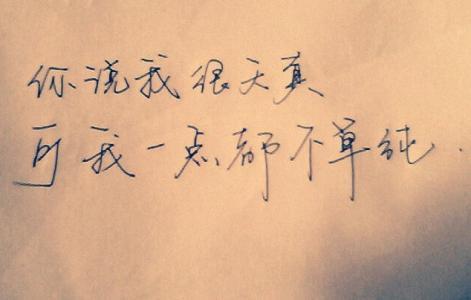 你说我很天真
可我一点都不单纯.